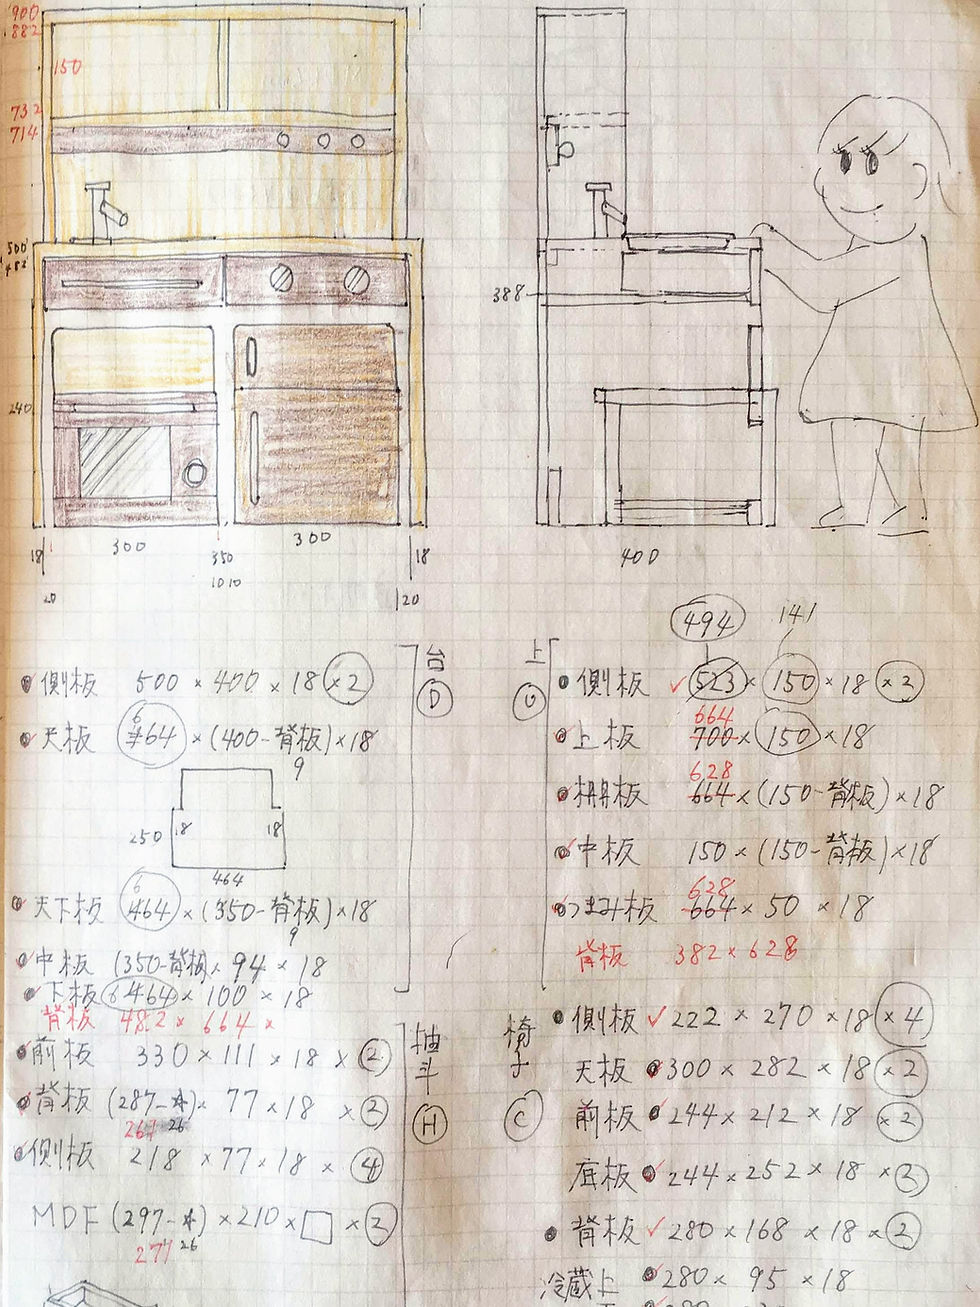 900
882
150
732
714
500
482
240
300
300
18
350
18
1010
20
120
388
400
494
141
台
D
側板 500×400×18 ×2
天板 664×(400-背板)×18
9
250
18
18
464
天下板 6464×(350-背板)×18
9
中板 (350-背板)×94×18
下板 6464×100×18
背板 482×664×
抽斗
H
前板 330×111×18×2
背板 (287-☆)×77×18×2
261 26
側板 218×77×18×4
MDF (297-☆)×210×□×2
271 26
上
U
側板 ✓523×150×18×2
664
上板 700×150×18
628
棚板 664×(150-背板)×18
中板 150×(150-背板)×18
628
つまみ板 664×50×18
背板 382×628
椅子
C
側板 ✓222×270×18×4
天板 300×282×18×2
前板 244×212×18×2
底板 244×252×18×2
背板 ✓280×168×18×2
冷蔵上 280×95×18